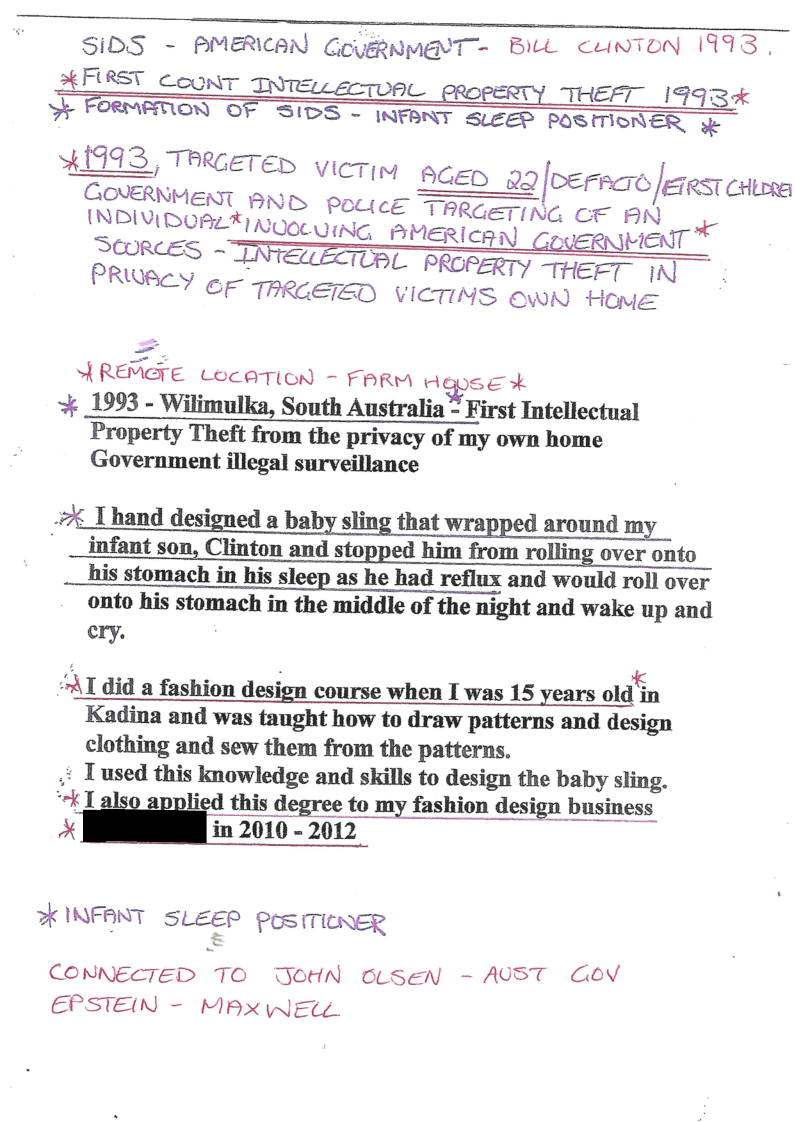 SIDS - AMERICAN GOVERNMENT - BILL CLINTON 1993.
*FIRST COUNT INTELLECTUAL PROPERTY THEFT 1993*
* FORMATION OF SIDS - INFANT SLEEP POSITIONER *
*1993, TARGETED VICTIM AGED 22/DEFACTO/FIRST CHILDREN
GOVERNMENT AND POLICE TARGETING OF AN
INDIVIDUAL *INVOLVING AMERICAN GOVERNMENT*
SOURCES - INTELLECTUAL PROPERTY THEFT IN
PRIVACY OF TARGETED VICTIMS OWN HOME
*REMOTE LOCATION - FARM HOUSE*
* 1993 - Wilimulka, South Australia - First Intellectual
Property Theft from the privacy of my own home
Government illegal surveillance
* I hand designed a baby sling that wrapped around my
infant son, Clinton and stopped him from rolling over onto
his stomach in his sleep as he had reflux and would roll over
onto his stomach in the middle of the night and wake up and
cry.
*I did a fashion design course when I was 15 years old* in
Kadina and was taught how to draw patterns and design
clothing and sew them from the patterns.
I used this knowledge and skills to design the baby sling.
*I also applied this degree to my fashion design business
* in 2010 - 2012
*INFANT SLEEP POSITIONER
CONNECTED TO JOHN OLSEN - AUST GOV
EPSTEIN - MAXWELL